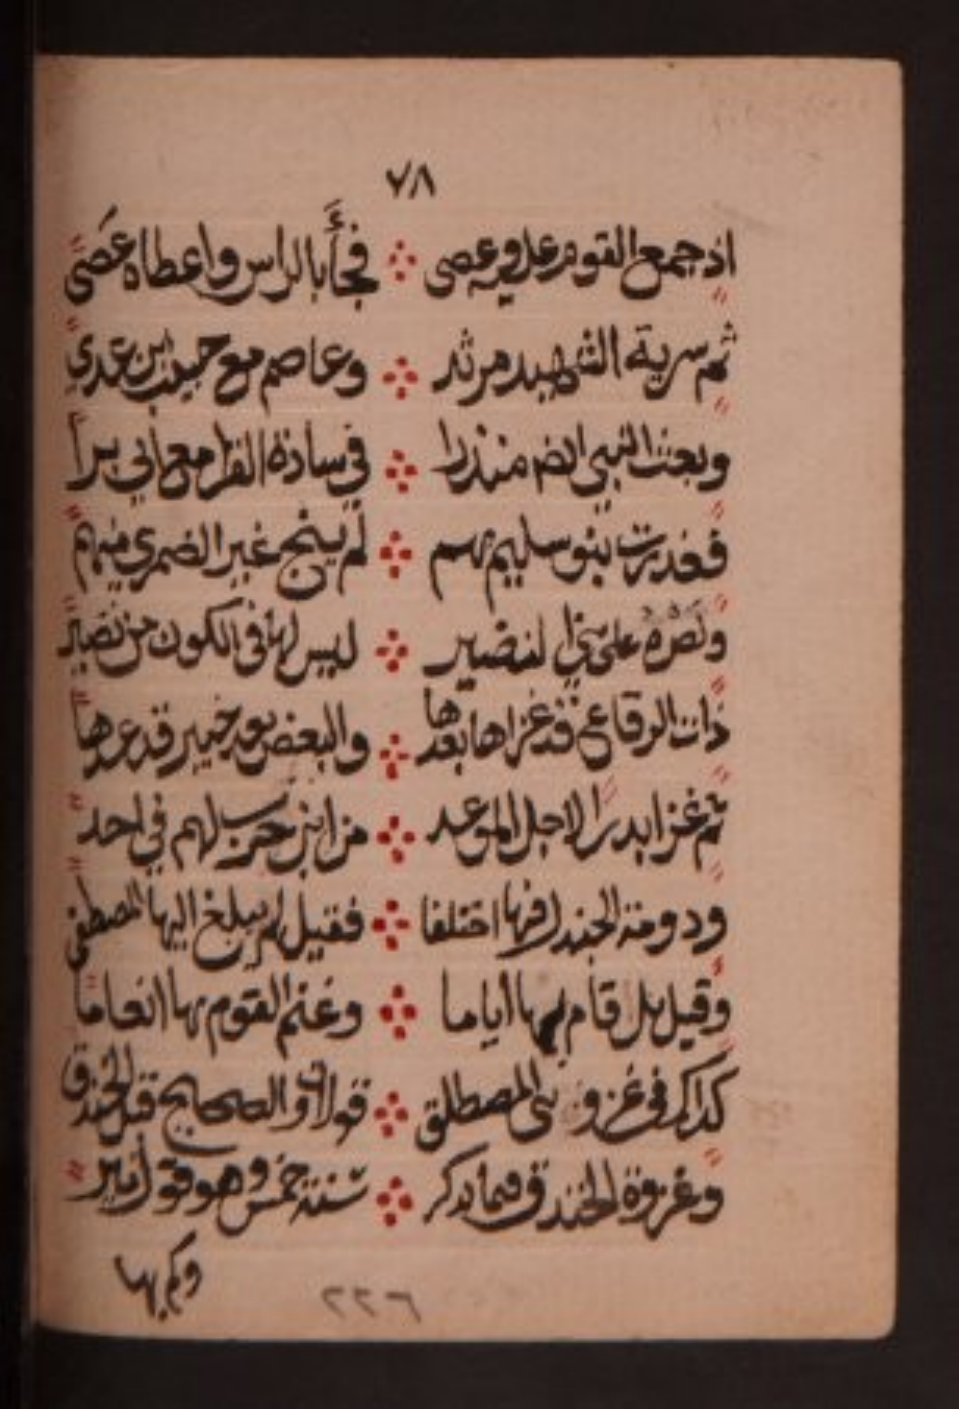 ٧٨
اذ جمع القوم عليه وعصى فجأ بالراس واعطاه عصى
ثم سرية الشهيد مرثد وعاصم مع خبيب بن عدي
وبعث النبي ايضا منذرا في سادة القرا مع ابي برا
فغدرت بنو سليم بهم لم ينج غير الضمري منهم
ونصره على بني النضير ليس لها في الكون من نضير
ذات الرقاع قد غزاها بعدها والبعض بعد خيبر قد عدها
ثم غزا بدرا لاجل الموعد من ابن حرب لهم في احد
ودومة الجندل فيها اختلفا فقيل لم يبلغ اليها المصطفى
وقيل بل قام بها اياما وغنم القوم بها انعاما
كذاك في غزو بني المصطلق قولان والصحيح قبل الخندق
وغزوة الخندق فيما يذكر سنة خمس وهو قول
وكم بها